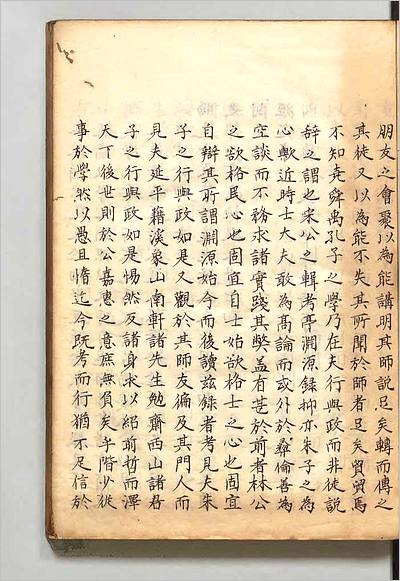 朋友之會聚以為能講明其師説足矣轉而傳之
其徒又以為能不失其所聞於師者足矣貿貿焉
不知堯舜禹孔子之學乃在夫行與政而非徒説
辭之謂也宋公之輯考亭淵源録抑亦朱子之為
心歟近時士大夫敢為髙論而或外於彛倫善為
空談而不務求諸實踐其弊蓋有甚於前者林公
之欲格民心也固宜自士始欲格士之心也固宜
自辯其所謂淵源始今而後讀兹録者考見夫朱
子之行與政如是又觀於其師友僃及其門人而
見夫延平籍溪象山南軒諸先生勉齋西山諸君
子之行與政如是惕然反諸身求以紹前哲而澤
天下後世則於公嘉惠之意庶無負矣予階少從
事於學然以愚且惰迄今既考而行猶不足信於